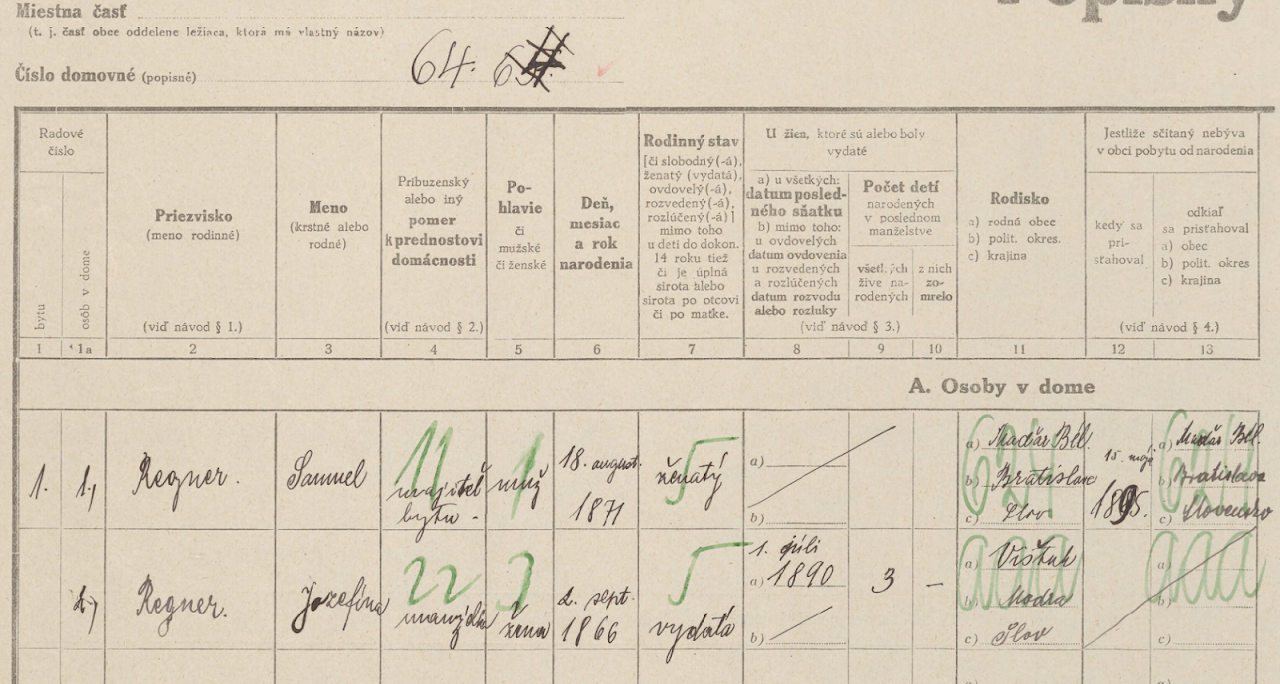 Miestna časť
Popisný
(t. j. časť obce oddelene ležiaca, ktorá má vlastný názov)
Číslo domovné (popisné) 64.
Radové číslo
bytu
osôb v dome
Priezvisko
(meno rodinné)
(viď návod § 1.)
Meno
(krstné alebo
rodné)
Príbuzenský
alebo iný
pomer
k prednostovi
domácnosti
(viď návod § 2.)
Po-
hlavie
či
mužské
či ženské
Deň,
mesiac
a rok
narodenia
Rodinný stav
[či slobodný(-á),
ženatý (vydatá),
ovdovelý(-á),
rozvedený(-á),
rozlúčený(-á)]
mimo toho
u detí do dokon.
14 roku tiež
či je úplná
sirota alebo
sirota po otcovi
či po matke.
U žien, ktoré sú alebo boly
vydaté
a) u všetkých:
datum posled-
ného sňatku
b) mimo toho:
u ovdovelých
datum ovdovenia
u rozvedených
a rozlúčených
datum rozvodu
alebo rozluky
Počet detí
narodených
v poslednom
manželstve
všetkých
žive na-
rodených
z nich
zo-
mrelo
(viď návod § 3.)
Rodisko
a) rodná obec
b) polit. okres.
c) krajina
Jestliže sčítaný nebýva
v obci pobytu od narodenia
kedy sa
pri-
sťahoval
odkiaľ
sa prisťahoval
a) obec
b) polit. okres
c) krajina
(viď návod § 4.)
1 1a 2 3 4 5 6 7 8 9 10 11 12 13
A. Osoby v dome
1. 1.) Regner. Samuel
11
majiteľ
bytu.
1
muž
18. august.
1871
5
ženatý
a)
b)
a) Maďar Bél.
b) Bratislava
c) Slov
15. mája
1895.
a) Maďar Bél.
b) Bratislava
c) Slovensko
2.) Regner. Jozefína
22
manželka
žena
2. sept.
1866
5
vydatá
1. júli
a) 1890
b)
3 –
a) Vištuk
b) Modra
c) Slov
a)
b)
c)